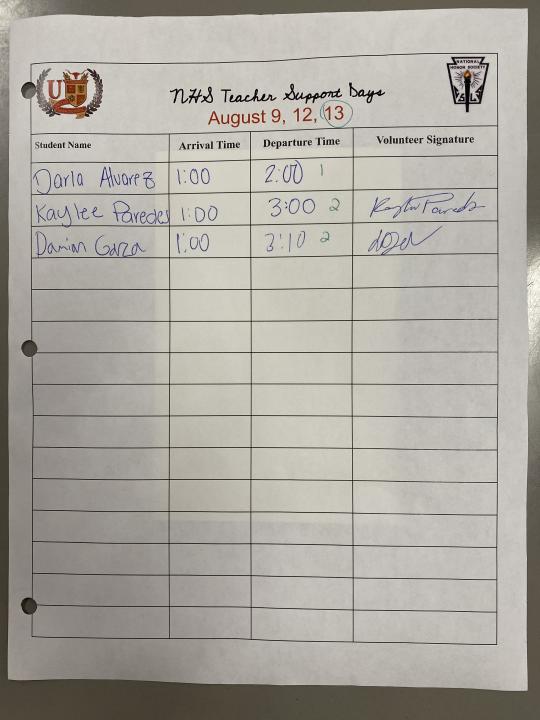 U
NATIONAL
HONOR SOCIETY
NHS Teacher Support Days
August 9, 12, 13
Student Name Arrival Time Departure Time Volunteer Signature
Darla Alvarez 1:00 2:00 1
Kaylee Paredes 1:00 3:00 2 Kaylee Paredes
Damian Garza 1:00 3:10 2